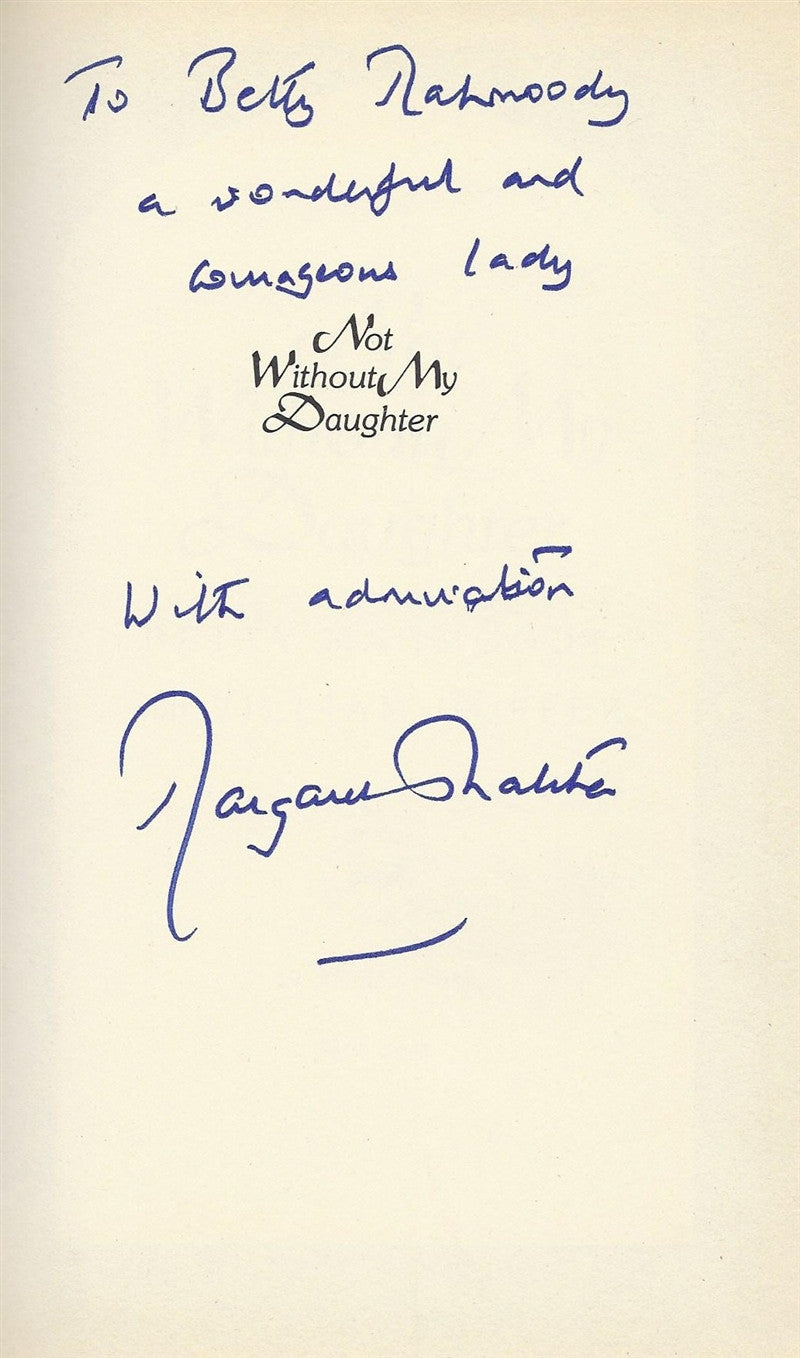 To Betty Mahmoody
a wonderful and
courageous lady
Not
Without My
Daughter
With admiration
Margaret Thatcher